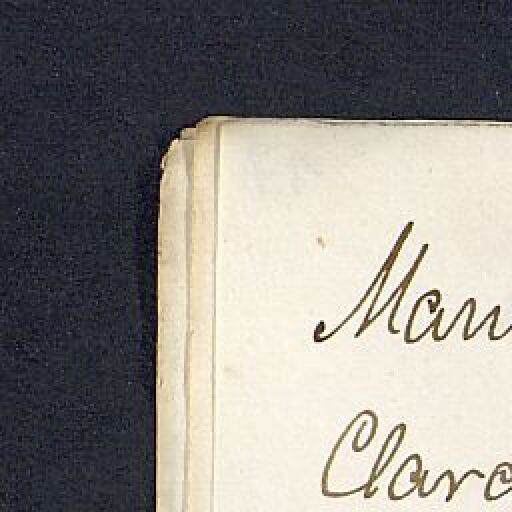 Man
Clara